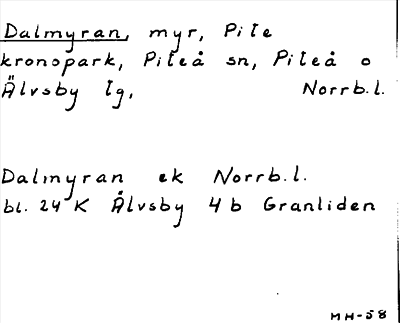 Dalmyran, myr, Pite
kronopark, Piteå sn, Piteå o
Älvsby lg, Norrb.l.
Dalmyran ek Norrb.l.
bl. 24 K Älvsby 4 b Granliden
MH-58